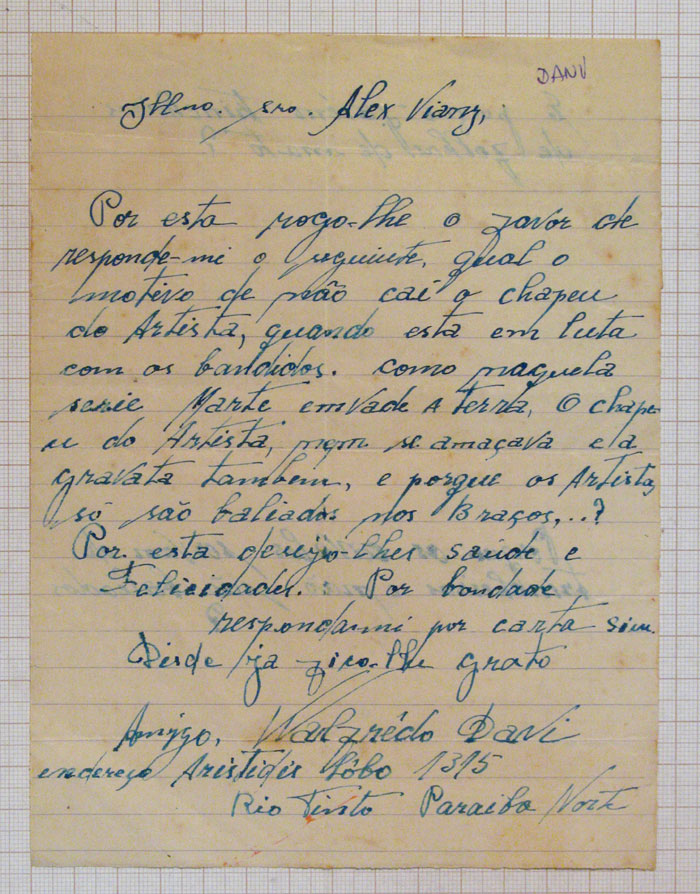 DANV
Illmo. sro. Alex Viany,
Por esta rogo-lhe o favor de
responde-mi o seguinte, qual o
motivo de não cai o chapeu
do Artista, quando esta em luta
com os bandidos. como naquela
serie Marte emvade A terra, O chape-
u do Artista, nem se amaçava e a
gravata tambem, e porque os Artistas
só são baliados nos Braços,..?
Por esta desejo-lhes saúde e
Felicidades. Por bondade
respondami por carta sim.
Disde ja fico-lhe grato
Amigo, Walfrédo Davi
endereço Aristidis Lôbo 1315
Rio Tinto Paraiba Norte